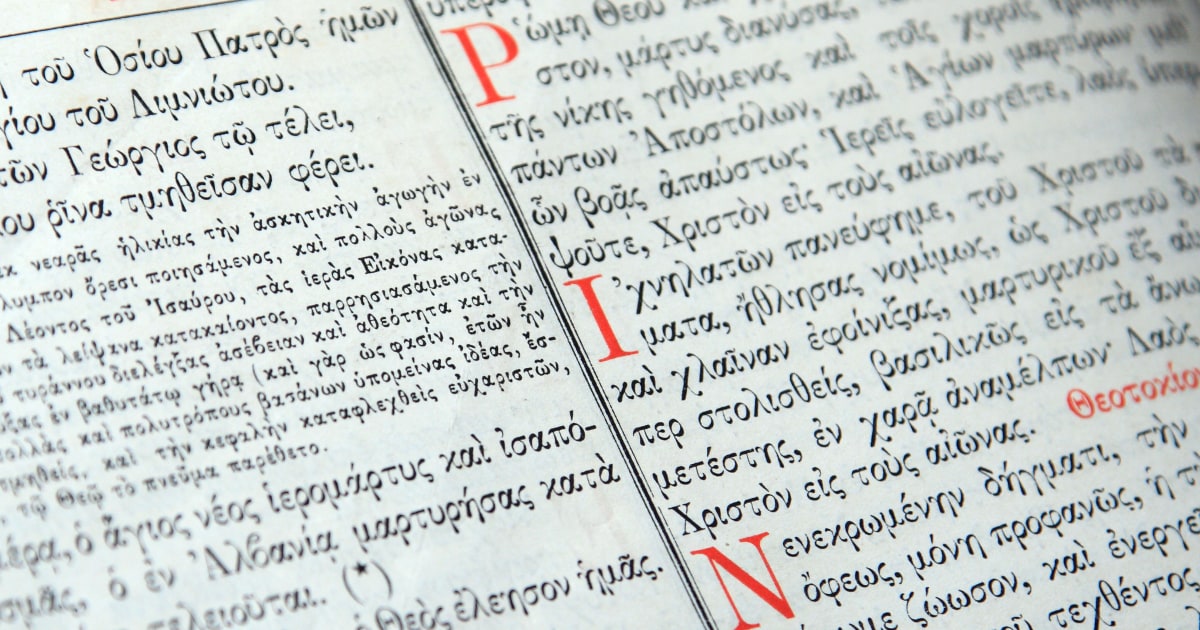 τοῦ Ὁσίου Πατρὸς ἡμῶν
τοῦ Λιμνιώτου.
Γεώργιος τῷ τέλει,
ῥῖνα τμηθεῖσαν φέρει.
νεαρᾶς ἡλικίας τὴν ἀσκητικὴν ἀγωγὴν ἐν
ὄρεσι ποιησάμενος, καὶ πολλοὺς ἀγῶνας
Λέοντος τοῦ Ἰσαύρου, τὰς ἱερὰς Εἰκόνας κατα-
τὰ λείψανα κατακαίοντος, παρρησιασάμενος τὴν
τυράννου διελέγξας ἀσέβειαν καὶ ἀθεότητα καὶ τὴν
ἐν βαθυτάτῳ γήρᾳ (καὶ γὰρ ὡς φασίν, ἐτῶν ἦν
καὶ πολυτρόπους βασάνων ὑπομείνας ἰδέας, ἔσ-
καὶ τὴν κεφαλὴν καταφλεχθεὶς εὐχαριστῶν,
τῷ Θεῷ τὸ πνεῦμα παρέθετο.
ὁ ἅγιος νέος ἱερομάρτυς καὶ ἰσαπό-
ὁ ἐν Ἀλβανίᾳ μαρτυρήσας κατὰ
τελειοῦται. (*)
Θεὸς ἐλεησον ἡμᾶς.
Ῥώμῃ Θεοῦ
στον, μάρτυς διανύσας,
τῆς νίκης γηθόμενος καὶ τοῖς χοροῖς
πάντων Ἀποστόλων, καὶ Ἁγίων μαρτύρων
ὧν βοᾷς ἀπαύστως· Ἱερεῖς εὐλογεῖτε, λαὸς
ψοῦτε, Χριστὸν εἰς τοὺς αἰῶνας.
Ἰχνηλατῶν πανεύφημε, τοῦ Χριστοῦ τὰ
ματα, ἤθλησας νομίμως, ὡς Χριστοῦ
καὶ χλαῖναν ἐφοίνιξας, μαρτυρικοῦ ἐξ
περ στολισθείς, βασιλικῶς εἰς τὰ
μετέστης, ἐν χαρᾷ ἀναμέλπων· Λαὸς
Χριστὸν εἰς τοὺς αἰῶνας. Θεοτοκίον
Νενεκρωμένην δήγματι, τὴν
ὄφεως, μόνη προφανῶς, ἡ
ζώωσον, καὶ
τεχθέντος